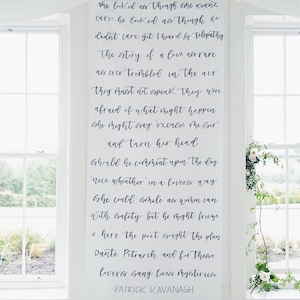 She looked as though she
care. he looked as though he
didn't care yet I heard by telepathy
the story of a love as rare
as ever trembled in the air
They must not speak. They were
afraid of what might happen
she might say 'excuse me sir'
and turn her head
should he comment upon the day
'nice weather' in a lovers way
she could smile as women can
with safety but he might freeze
& here the poet caught the plan
Dante Petrarch and for these
lovers sang lovers mysteries
PATRICK KAVANAGH